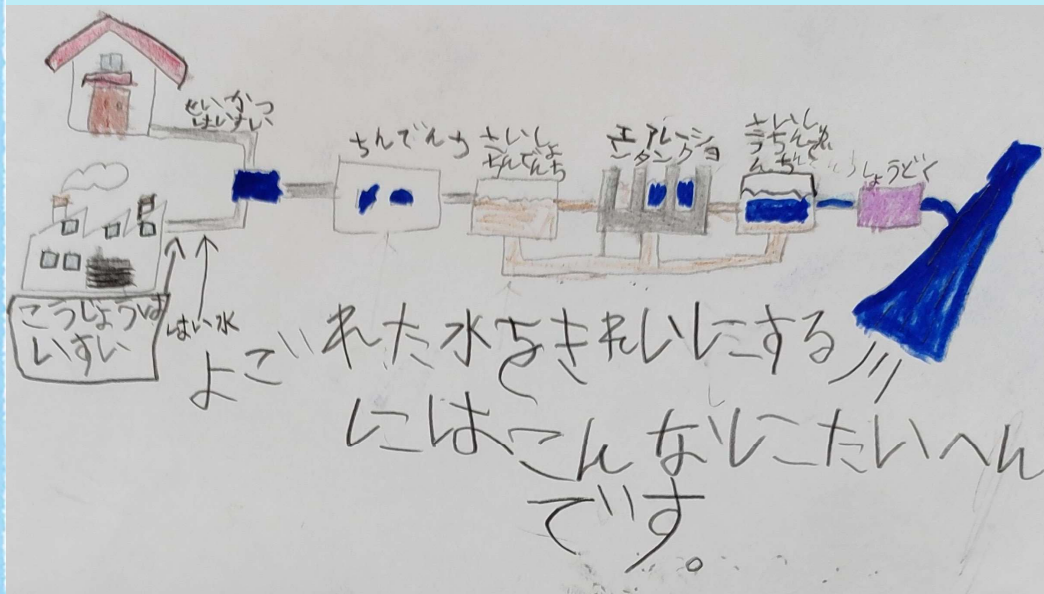 せいかつ
はいすい
ちんでんち
さいしょ
ちんでんち
エアレーショ
ンタンク
さいしゅ
うちんで
んち
しょうどく
こうじょうは
いすい
はい水
よごれた水をきれいにする
にはこんなにたいへん
です。